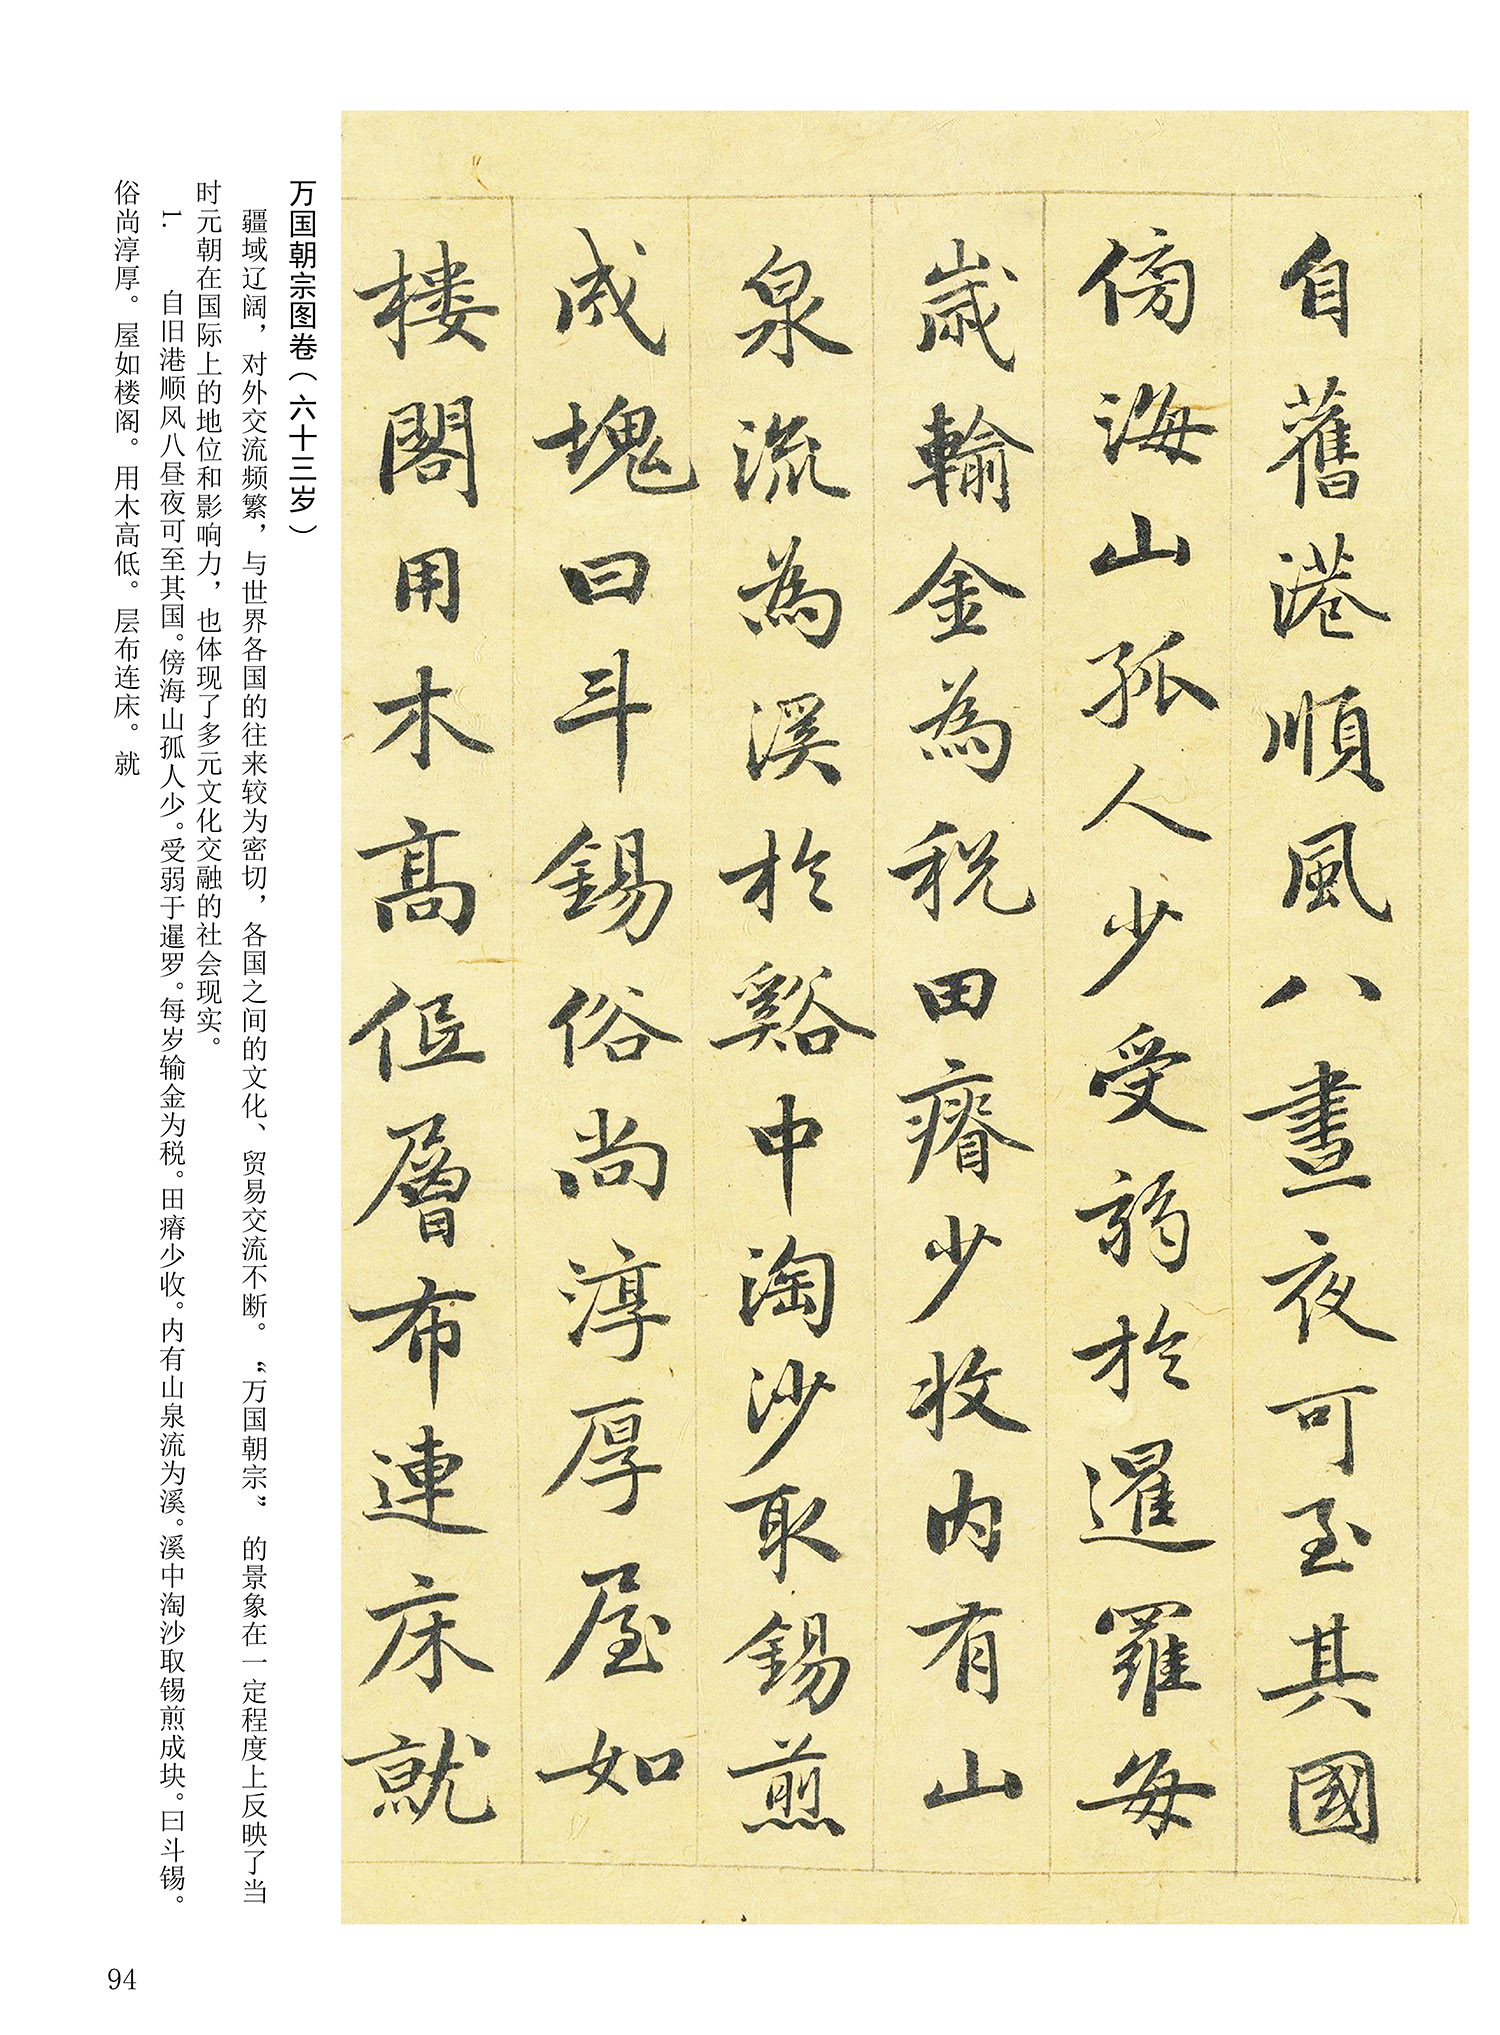 自舊港順風八晝夜可至其國
傍海山孤人少受弱於暹羅每
歲輸金為稅田瘠少收内有山
泉流為溪於谿中淘沙取錫煎
成塊曰斗錫俗尚淳厚屋如
楼閣用木高低層布連床就
万国朝宗图卷（六十三岁）
疆域辽阔，对外交流频繁，与世界各国的往来较为密切，各国之间的文化、贸易交流不断。“万国朝宗”的景象在一定程度上反映了当
时元朝在国际上的地位和影响力，也体现了多元文化交融的社会现实。
1. 自旧港顺风八昼夜可至其国。傍海山孤人少。受弱于暹罗。每岁输金为税。田瘠少收。内有山泉流为溪。溪中淘沙取锡煎成块。曰斗锡。
俗尚淳厚。屋如楼阁。用木高低。层布连床。就
94